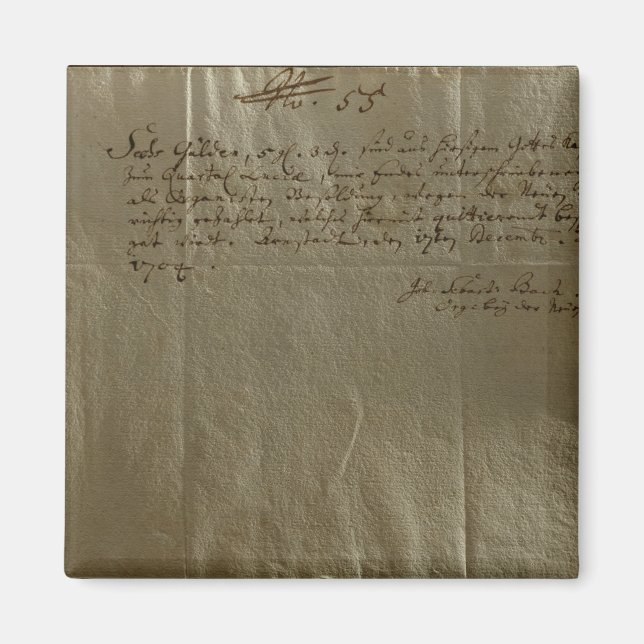 No. 55
Sechs Gülden, 5 gl. 3 d. sind aus hiesigem Gottes Ka
zum Quartal Luciæ, mir Endes unterschriebenen
als Organisten Besoldung, wegen der Neüen
richtig gezahlet, welches hiermit quittierendt be
get wirdt. Arnstadt, den Decembr.
1704.
Joh. Sebast: Bach
Org: bey der Neüe